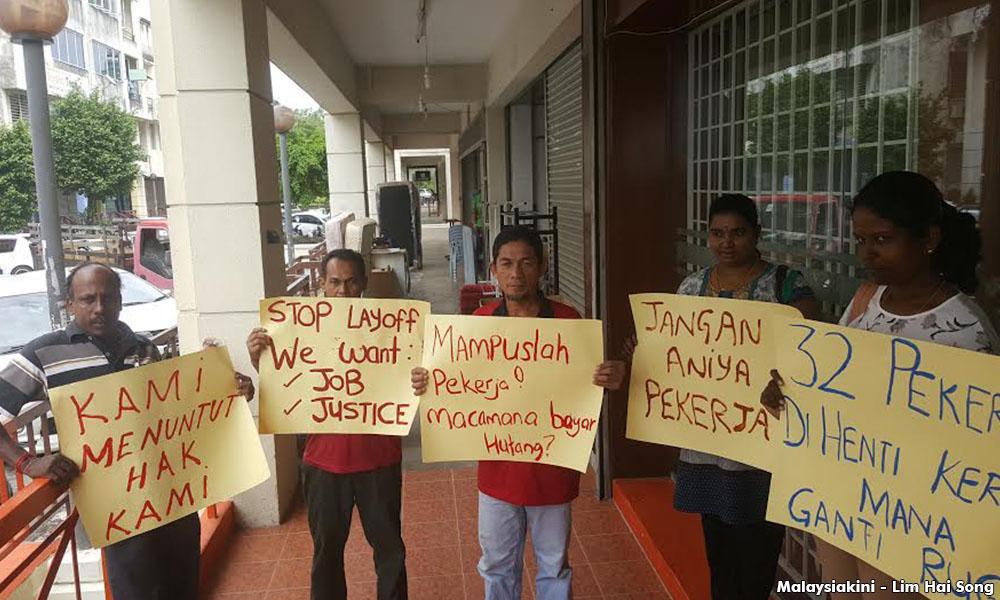 KAMI
MENUNTUT
HAK
KAMI
STOP LAYOFF
We want:
✓ JOB
✓ JUSTICE
MAMPUSlah
Pekerja!
macamana bayar
Hutang?
JANGAN
ANIYA
PEKERJA
32 PEKER
DI HENTI KER
MANA
GANTI RUG
Malaysiakini - Lim Hai Song